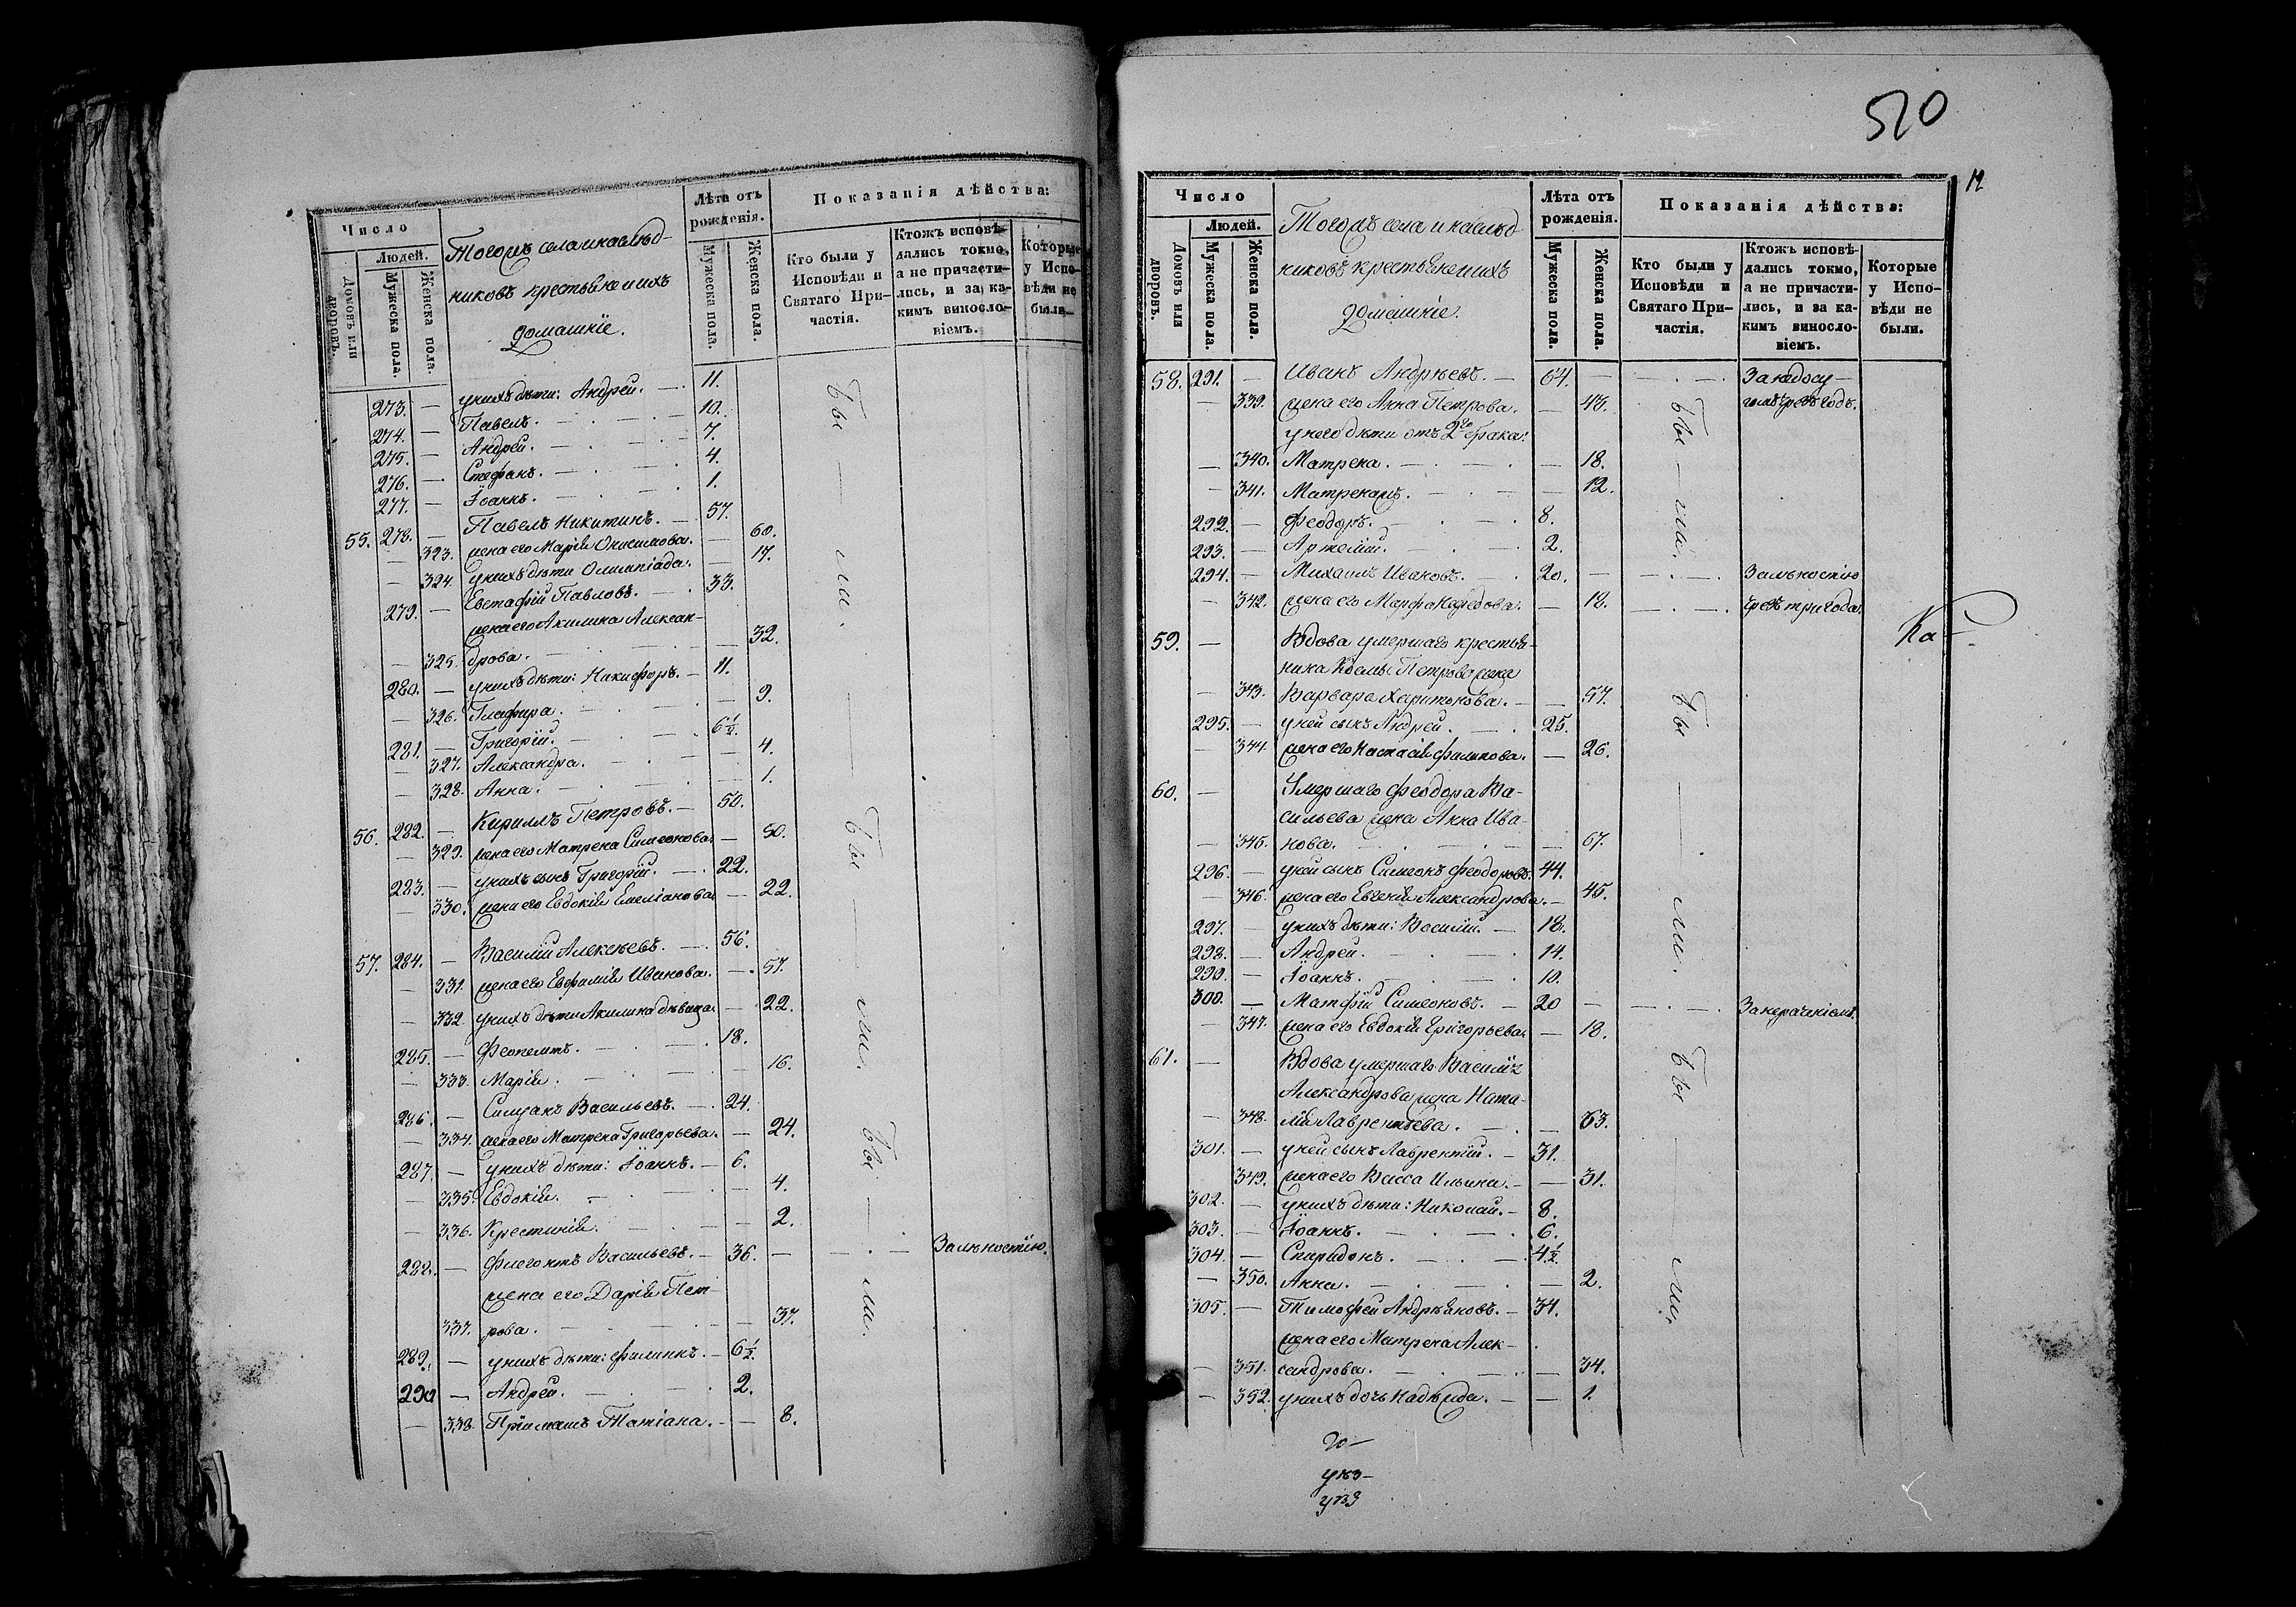 Число
Людей.
Домовъ или дворовъ.
Мужеска пола.
Женска пола.
Тогожъ села и наслѣд-
никовъ крестьяне и ихъ
домашніе.
Лѣта отъ
рожденія.
Мужеска пола.
Женска пола.
Показанія дѣйства:
Кто были у
Исповѣди и
Святаго При-
частія.
Ктожъ исповѣ-
дались токмо,
а не причасти-
лись, и за ка-
кимъ винословіемъ.
Которые
у Испо-
вѣди не
были.
273. — у нихъ дѣти: Андрей. — 11.
274. — Павелъ. — 10.
275. — Андрей. — 7.
276. — Стефанъ. — 4.
277. — Іоаннъ. — 1.
55. 278. — Павелъ Никитинъ. — 57.
— 323. жена его Марія Онисимова. — 60.
— 324. у нихъ дѣти Олимпіада. — 17.
279. — Евстафій Павловъ. — 33.
жена его Акилина Алексан-
— 325. дрова. — 32.
280. — у нихъ дѣти: Никифоръ. — 11.
— 326. Глафира. — 9.
281. — Григорій. — 6½.
— 327. Александра. — 4.
— 328. Анна. — 1.
56. 282. — Кириллъ Петровъ. — 50.
— 329. жена его Матрена Симеонова. — 50.
283. — у нихъ сынъ Григорій. — 22.
— 330. жена его Евдокія Емеліанова. — 22.
57. 284. — Василій Алексѣевъ. — 56.
— 331. жена его Евфимія Иванова. — 57.
— 332. у нихъ дѣти Акилина дѣвица. — 22.
285. — Феопемтъ. — 18.
— 333. Марія. — 16.
286. — Васильевъ. — 24.
— 334. жена его Матрена Григорьева. — 24.
287. — у нихъ дѣти: Іоаннъ. — 6.
— 335. Евдокія. — 4.
— 336. Крестинія. — 2.
288. — Флегонтъ Васильевъ. — 36. — За лѣностію.
жена его Дарія Пет-
337. рова. — 37.
289. — у нихъ дѣти: Филиппъ. — 6½.
290 — Андрей. — 2.
— 338. Пріимышъ Татіана. — 8.
Бы — ли.
Бы — ли.
Бы — ли.
510
12
Число
Людей.
Домовъ или дворовъ.
Мужеска пола.
Женска пола.
Тогожъ села и наслѣд-
никовъ крестьяне и ихъ
домашніе.
Лѣта отъ
рожденія.
Мужеска пола.
Женска пола.
Показанія дѣйства:
Кто были у
Исповѣди и
Святаго При-
частія.
Ктожъ исповѣ-
дались токмо,
а не причасти-
лись, и за ка-
кимъ винословіемъ.
Которые
у Испо-
вѣди не
были.
58. 291. — Иванъ Андрѣевъ. — 64. — За недосу-
— 339. жена его Анна Петрова. — 43. гомъ чрезъ годъ.
у него дѣти отъ 2го брака:
— 340. Матрена. — 18.
— 341. Матренажъ. — 12.
292. — Феодоръ. — 8.
293. — Артемій. — 2.
294. — Михаилъ Ивановъ. — 20. — За лѣностію
— 342. жена его Марфа — 18. — чрезъ три года.
Ка—
59. — Вдова умершаго крестья-
нина Козьмы Петрова жена
— 343. Варвара Харитонова. — 57.
295. — у ней сынъ Андрей. — 25.
— 344. жена его Настасія Филипова. — 26.
60. — Умершаго Феодора Ва-
сильева жена Анна Ива-
— 345. нова. — 67.
296. — у ней сынъ Симеонъ Феодоровъ. 44.
— 346. жена его Евгенія Александрова. — 45.
297. — у нихъ дѣти: Василій. — 18.
298. — Андрей. — 14.
299. — Іоаннъ. — 10.
300. — Матфій Симеоновъ. — 20 — За нераченіемъ.
— 347. жена его Евдокія Григорьева. — 18.
61. — Вдова умершаго Василія
Александрова жена Ната-
— 348. лія Лаврентьева. — 63.
301. — у ней сынъ Лаврентій. — 31.
— 349. жена его Васса Ильина. — 31.
302. — у нихъ дѣти: Николай. — 8.
303. — Іоаннъ. — 6.
304. — Спиридонъ. — 4½.
— 350. Анна. — 2.
305. — Тимофей Андрѣяновъ. — 34.
жена его Матрена Алек-
— 351. сандрова. — 34.
— 352. у нихъ дочь Надежда. — 1.
Бы — ли.
Бы — ли.
Бы — ли.